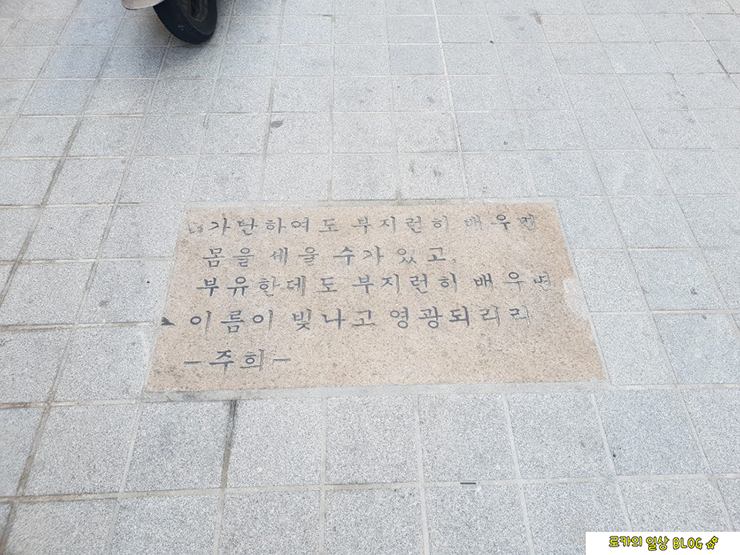 가난하여도 부지런히 배우면
몸을 세울 수가 있고,
부유한데도 부지런히 배우면
이름이 빛나고 영광되리라
-주희-
로카의 일상 BLOG